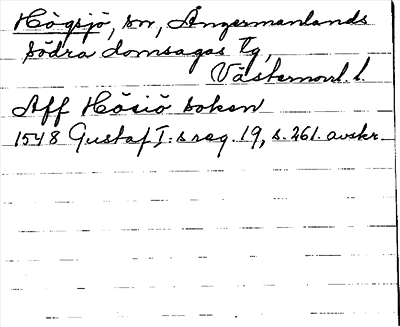 Högsjö, sn, Ångermanlands
södra domsagas tg,
Västernorrl. l.
Aff Hösiö soken
1548 Gustaf I:s reg. 19, s. 261. avskr.